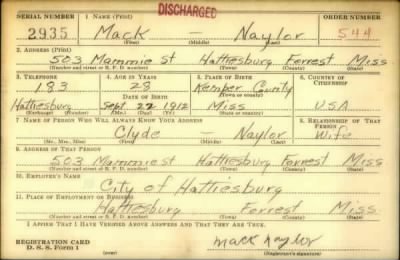 DISCHARGED
SERIAL NUMBER 1. NAME (Print) ORDER NUMBER
2935 Mack — Naylor 544
(First) (Middle) (Last)
2. ADDRESS (Print)
503 Mammie St Hattiesburg Forrest Miss
(Number and street or R. F. D. number) (Town) (County) (State)
3. TELEPHONE 4. AGE IN YEARS 5. PLACE OF BIRTH 6. COUNTRY OF CITIZENSHIP
183 28 Kemper County
DATE OF BIRTH (Town or county)
Hattiesburg Sept. 22 1912 Miss USA
(Exchange) (Number) (Mo.) (Day) (Yr.) (State or country)
7. NAME OF PERSON WHO WILL ALWAYS KNOW YOUR ADDRESS 8. RELATIONSHIP OF THAT PERSON
Clyde — Naylor Wife
(Mr., Mrs., Miss) (First) (Middle) (Last)
9. ADDRESS OF THAT PERSON
503 Mammie St Hattiesburg Forrest Miss
(Number and street or R. F. D. number) (Town) (County) (State)
10. EMPLOYER'S NAME
City of Hattiesburg
11. PLACE OF EMPLOYMENT OR BUSINESS
Hattiesburg Forrest Miss.
(Number and street or R. F. D. number) (Town) (County) (State)
I AFFIRM THAT I HAVE VERIFIED ABOVE ANSWERS AND THAT THEY ARE TRUE.
REGISTRATION CARD
D. S. S. Form 1 (over) Mack Naylor
(Registrant's signature)